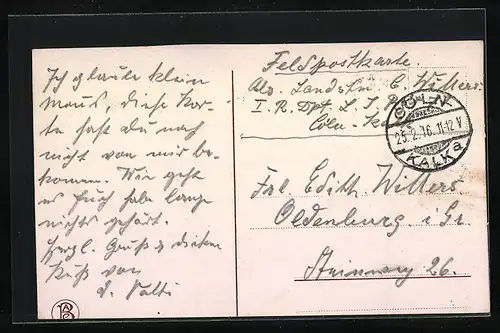 Ich glaube klein
Maus, diese Kar-
te hast du noch
nicht von mir be-
kommen. Wie geht
es Euch habe lange
nichts gehört.
Herzl. Gruß & dicken
Kuß von
d. Vati
Feldpostkarte.
Abs. Landstm. C. Willers
I. R. Dpt. L. I.
Cöln-
CÖLN-
25.2.16.11-12V
KALK a
Frl. Edith Willers
Oldenburg i. Gr.
Steinweg 26.